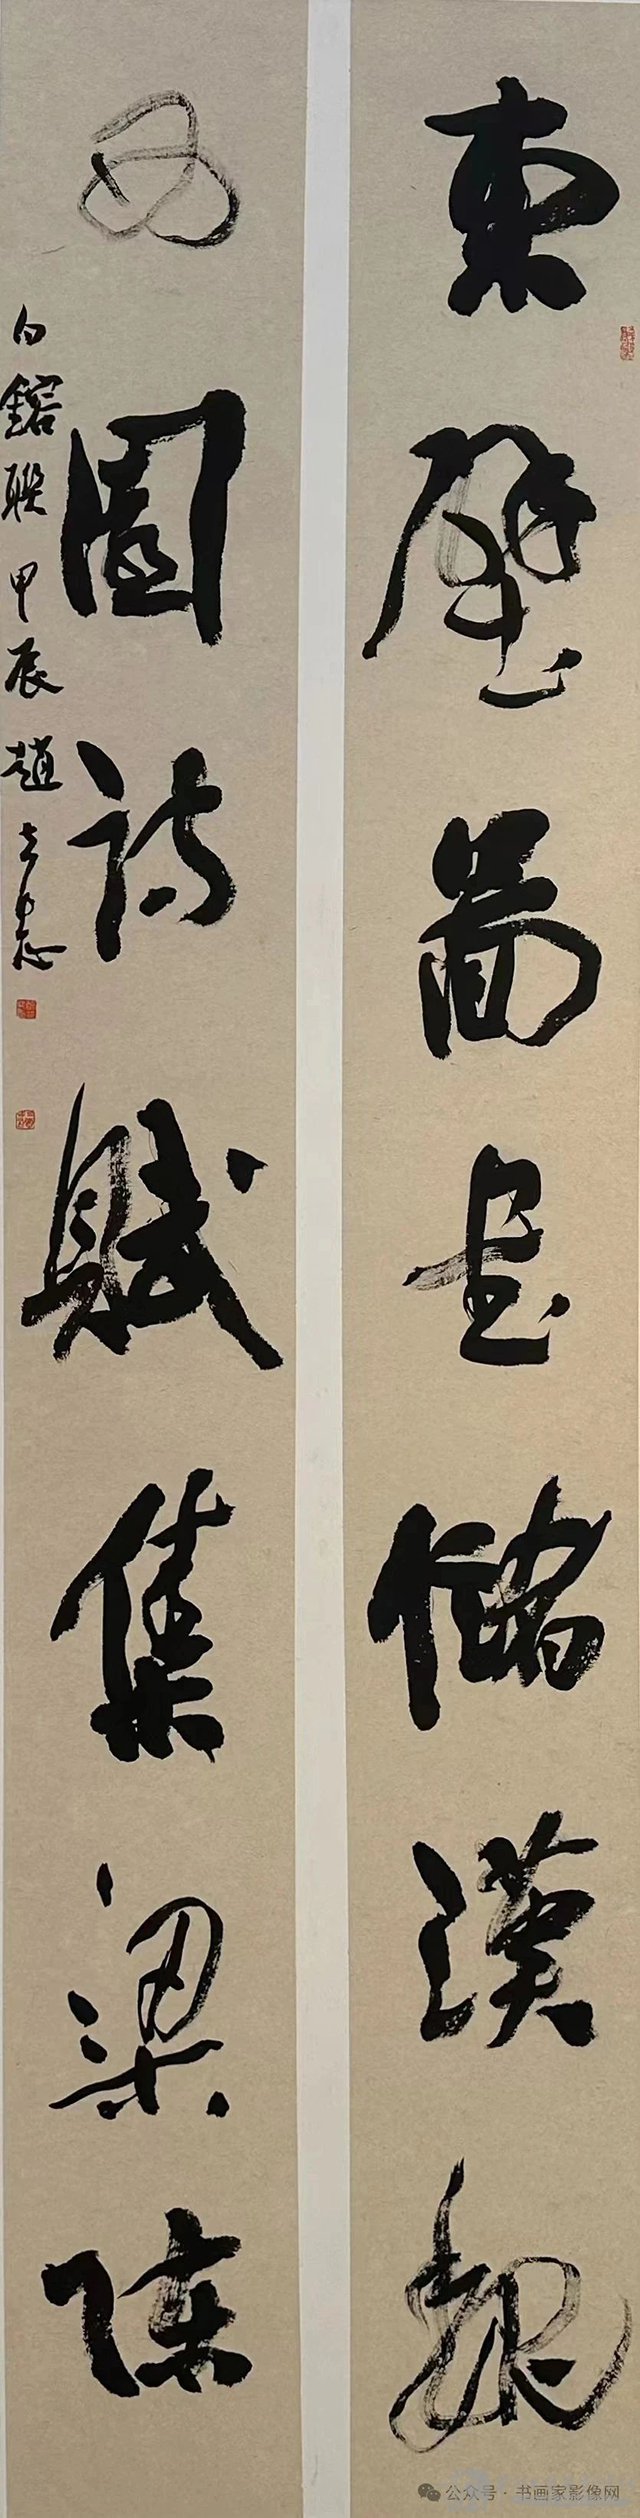 東壁圖書儲漢魏
西園詩賦集梁陳
白鎔聯 甲辰 趙立志
公众号 · 书画家影像网